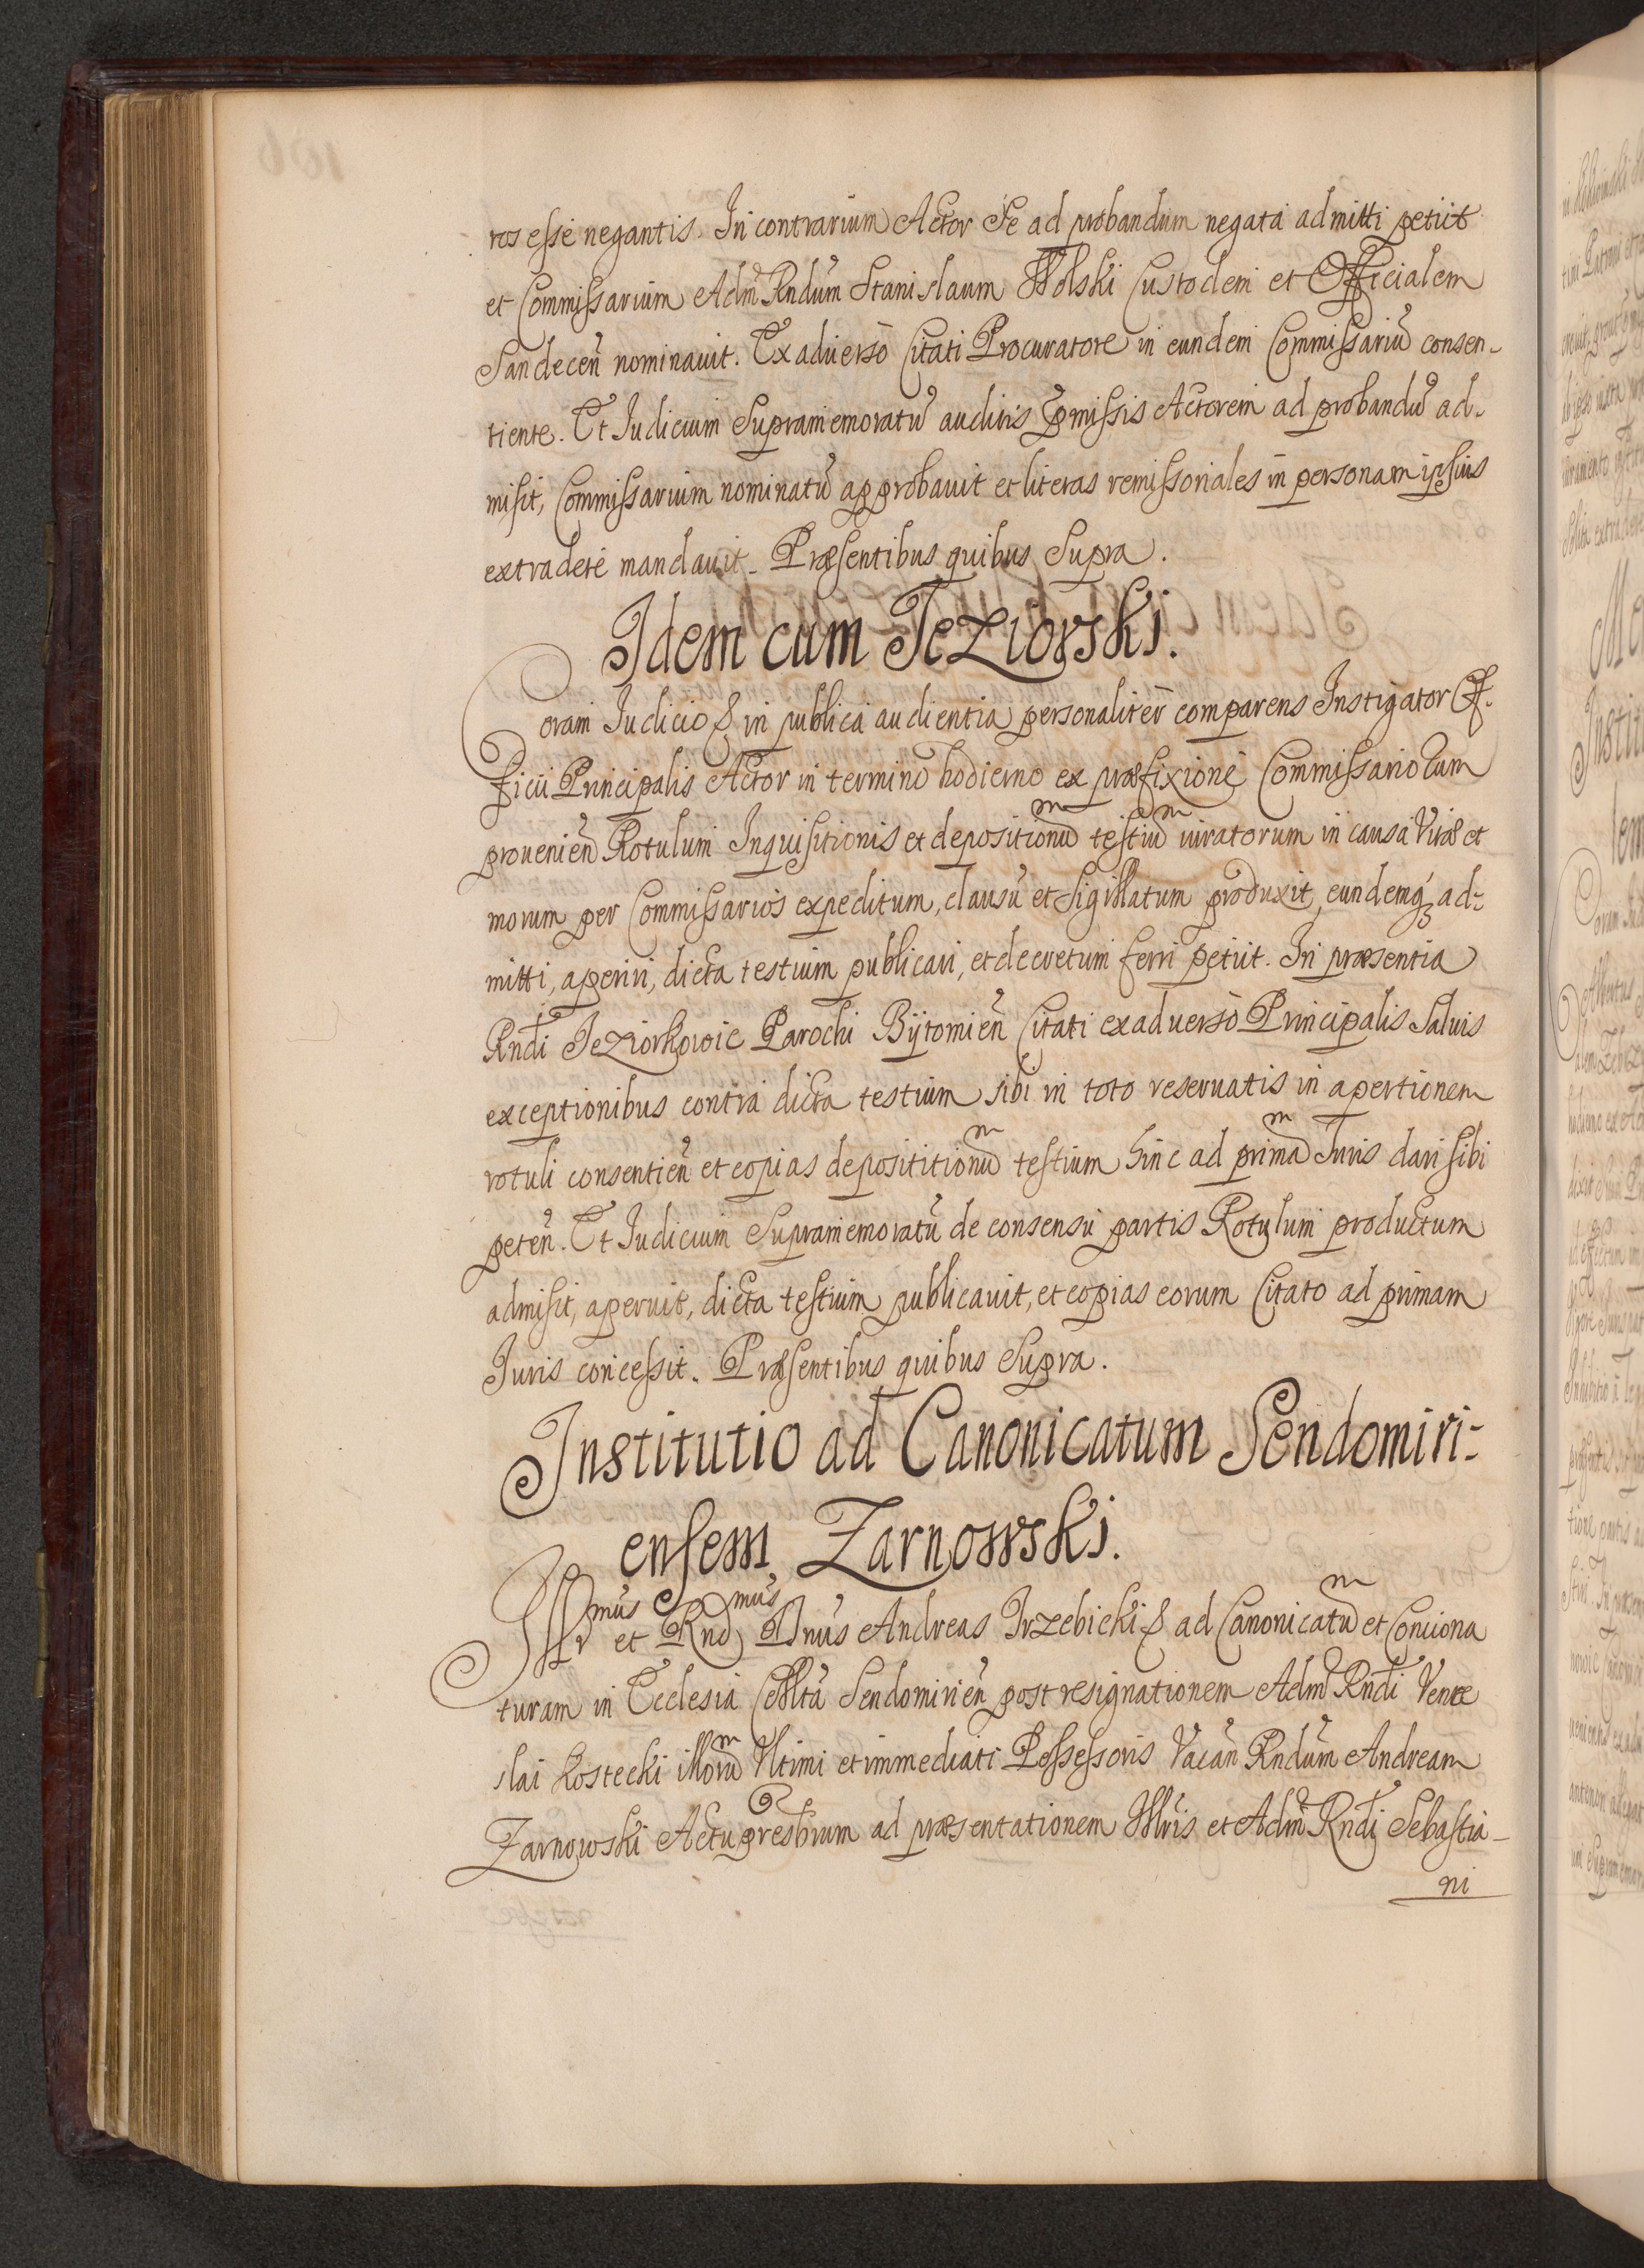 ros esse negantis. In contrarium Actor Se ad probandum negata admitti petiit
et Commissarium Adm Rndum Stanislaum Wolski Custodem et Officialem
Sandecen nominauit. Ex aduerso Citati Procuratore in eundem Commissariū consen-
tiente. Et Iudicium Supramemoratū auditis pmissis Actorem ad probandū ad-
misit, Commissarium nominatū approbauit et literas remissoriales in personam ipsius
extradere mandauit. Præsentibus quibus Supra.
Idem cum Jeziorski.
Coram Iudicio & in publica audientia personaliter comparens Instigator Of-
ficii Principalis Actor in termino hodierno ex præfixione Commissariorum
prouenien Rotulum Inquisitionis et depositionum testium iuratorum in causa Vitæ et
morum per Commissarios expeditum, clausū et Sigillatum produxit, eundemq ad-
mitti, aperiri, dicta testium publicari, et decretum ferri petiit. In præsentia
Rndi Jeziorkowic Parochi Bytomien Citati ex aduerso Principalis Saluis
exceptionibus contra dicta testium sibi in toto reseruatis in apertionem
rotuli consentien et copias deposititionum testium hinc ad primam Iuris dari sibi
peten. Et Iudicium Supramemoratū de consensu partis Rotulum productum
admisit, aperuit, dicta testium publicauit, et copias eorum Citato ad primam
Iuris concessit. Præsentibus quibus Supra.
Institutio ad Canonicatum Sendomiri-
ensem Zarnowski.
Illrmus et Rndmus Dnus Andreas Trzebicki & ad Canonicatum et Conciona
turam in Ecclesia Collta Sendomirien post resignationem Adm Rndi Vence
slai Kostecki illorum Vltimi et immediati Possessoris Vacan Rndum Andream
Zarnowski Actu presbrum ad præsentationem Illris et Adm Rndi Sebastia-
ni